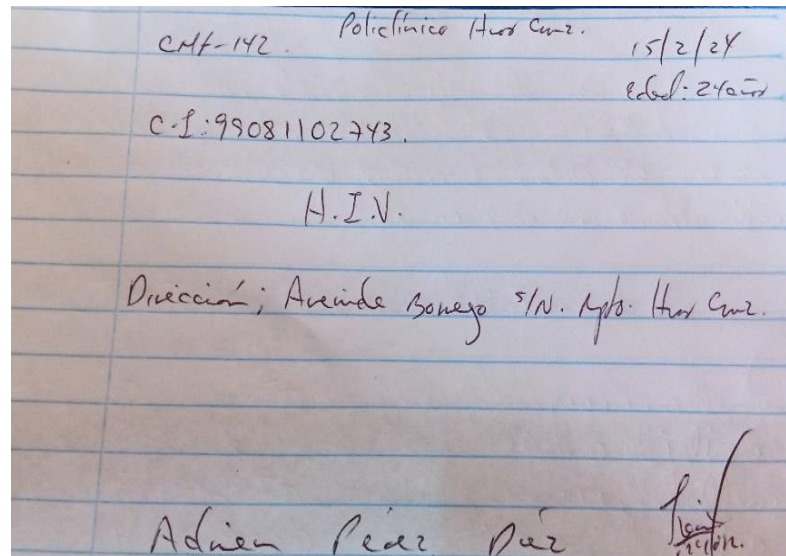 CMF-142. Policlínico Hnos Cruz. 15/2/24
Edad: 24 años
C.I: 99081102743.
H.I.V.
Dirección; Avenida Borrego s/N. Rpto. Hnos Cruz.
Adrien Pérez Díaz